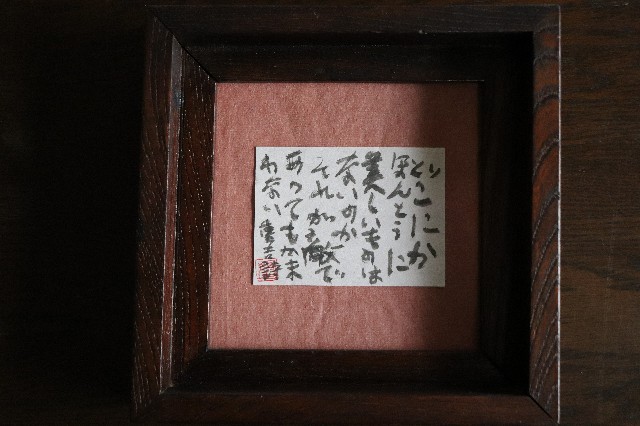 どこにか
ほんとうに
美しいものは
ないのか
それが敵で
あってもかま
わない